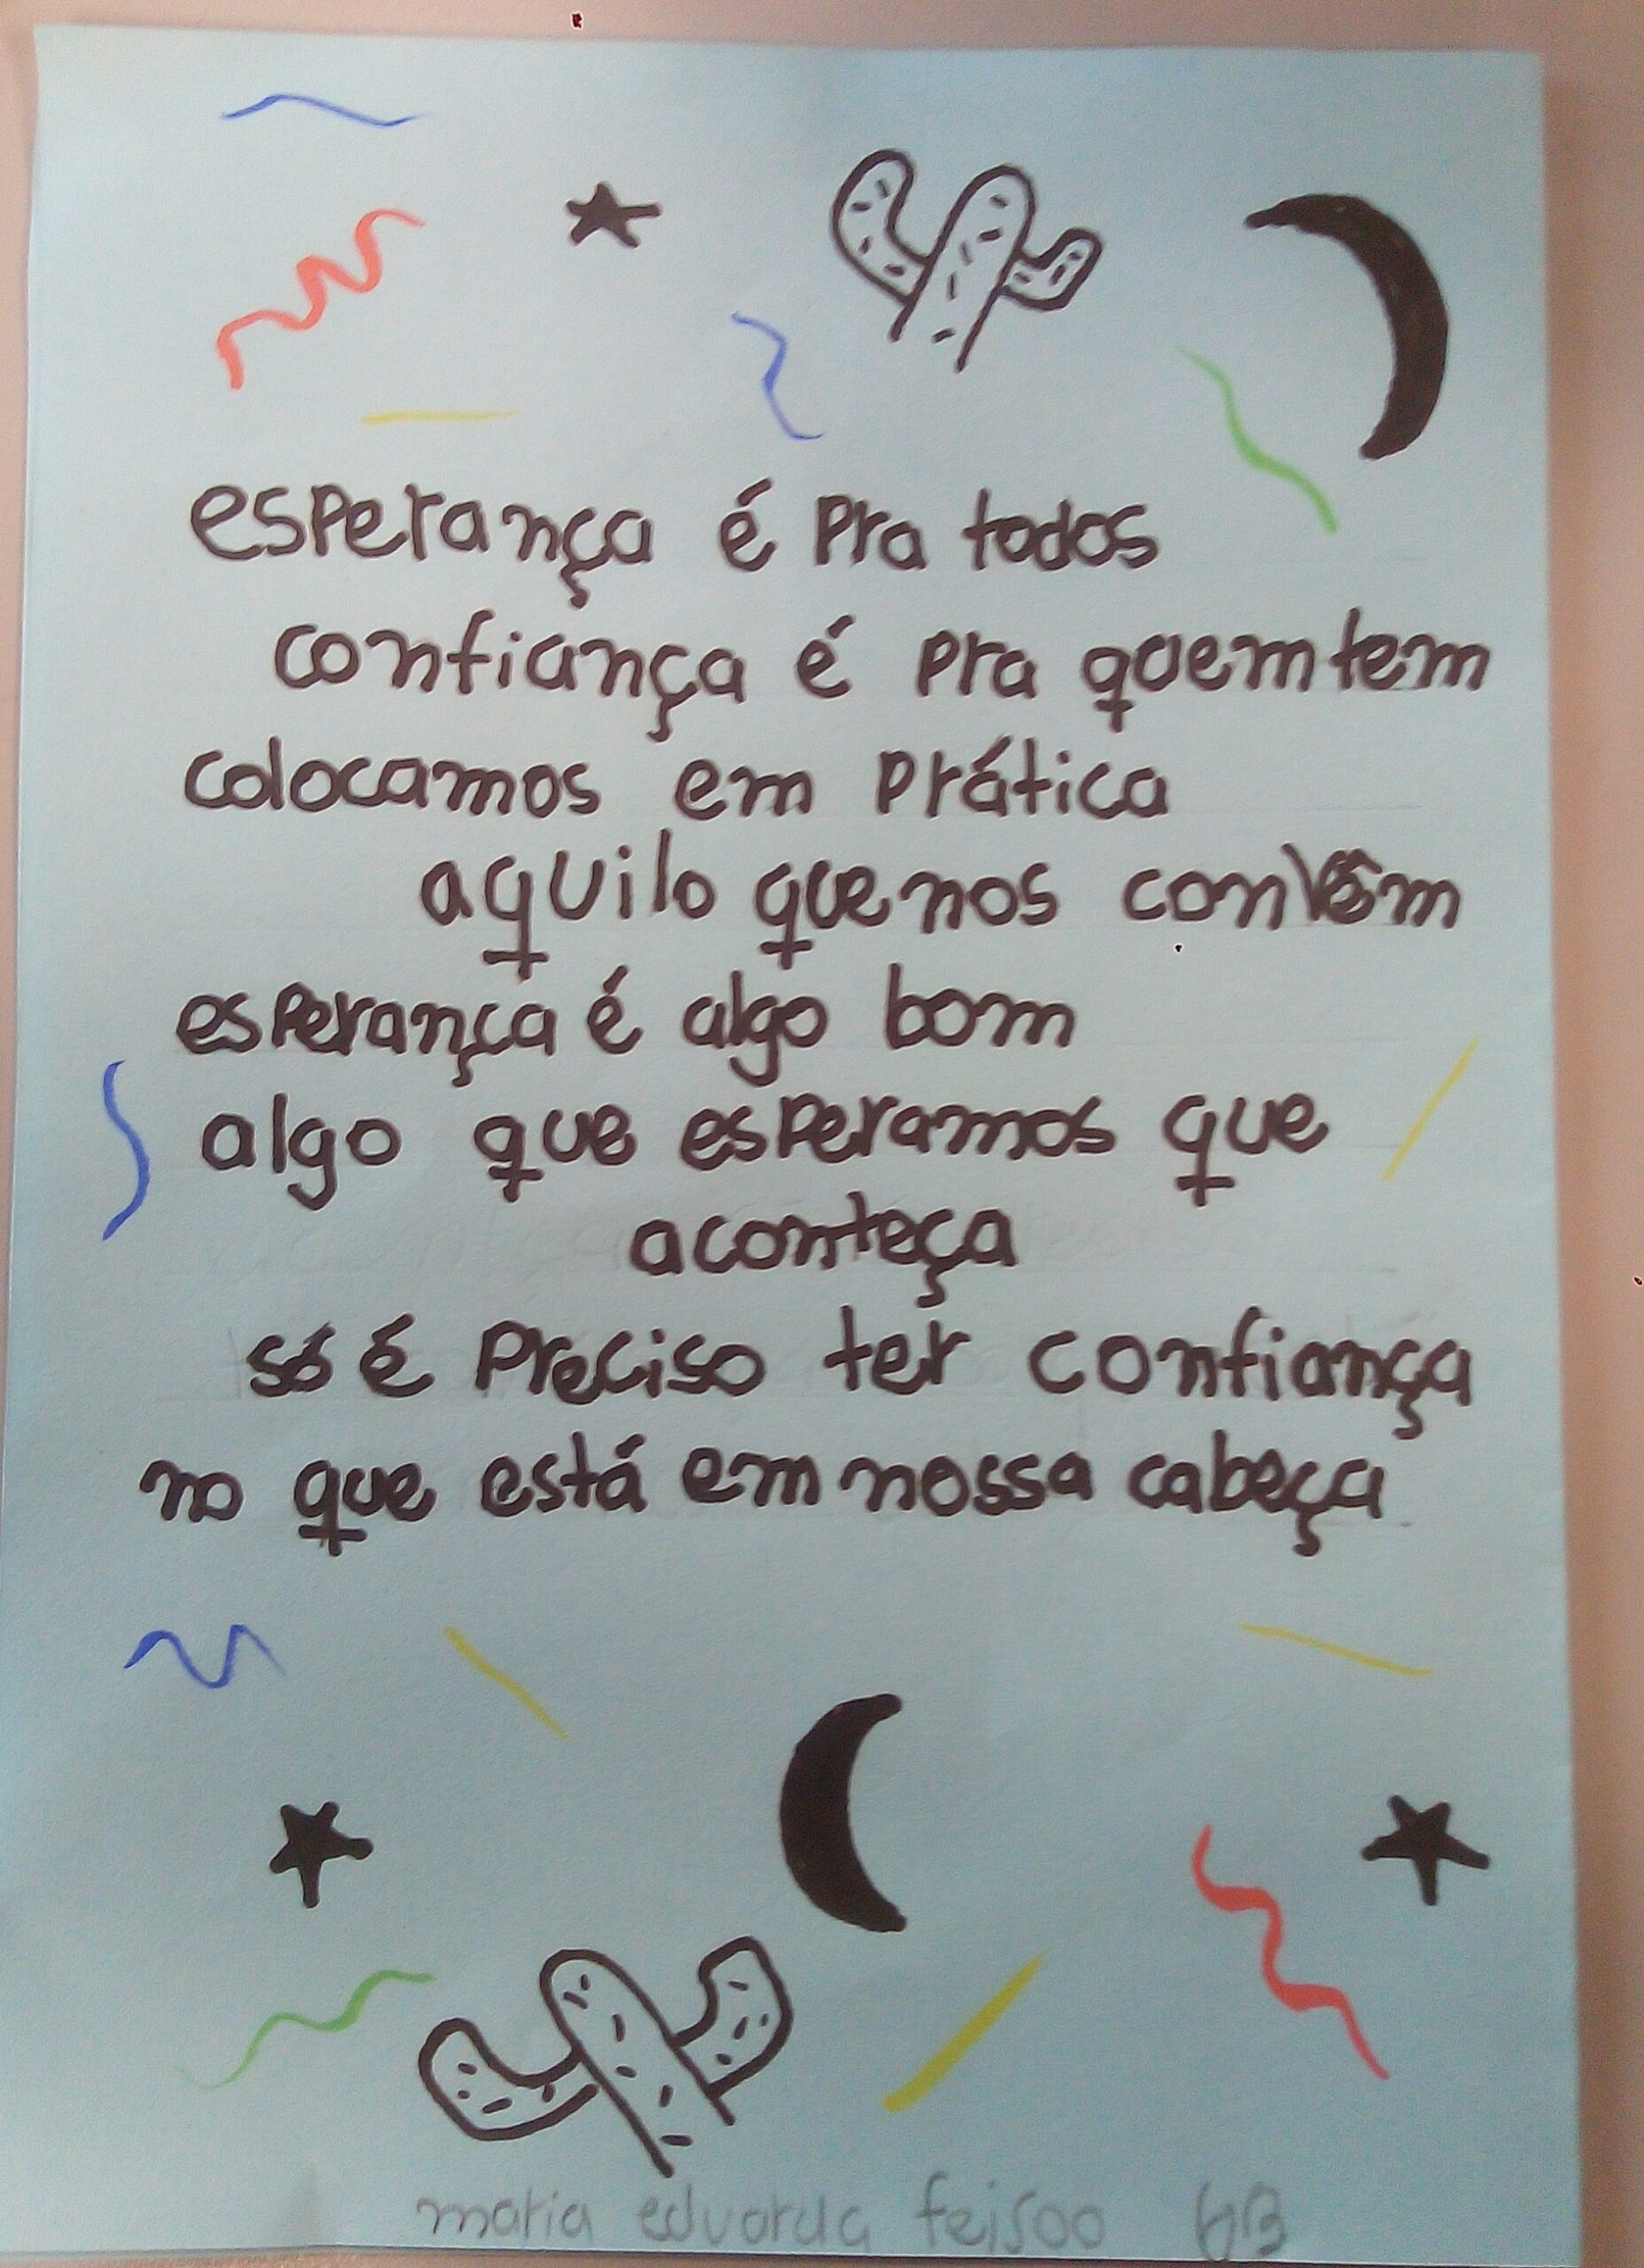 esperança é pra todos
confiança é pra quem tem
colocamos em prática
aquilo que nos convêm
esperança é algo bom
algo que esperamos que
aconteça
só é preciso ter confiança
no que está em nossa cabeça
maria eduarda feijoo